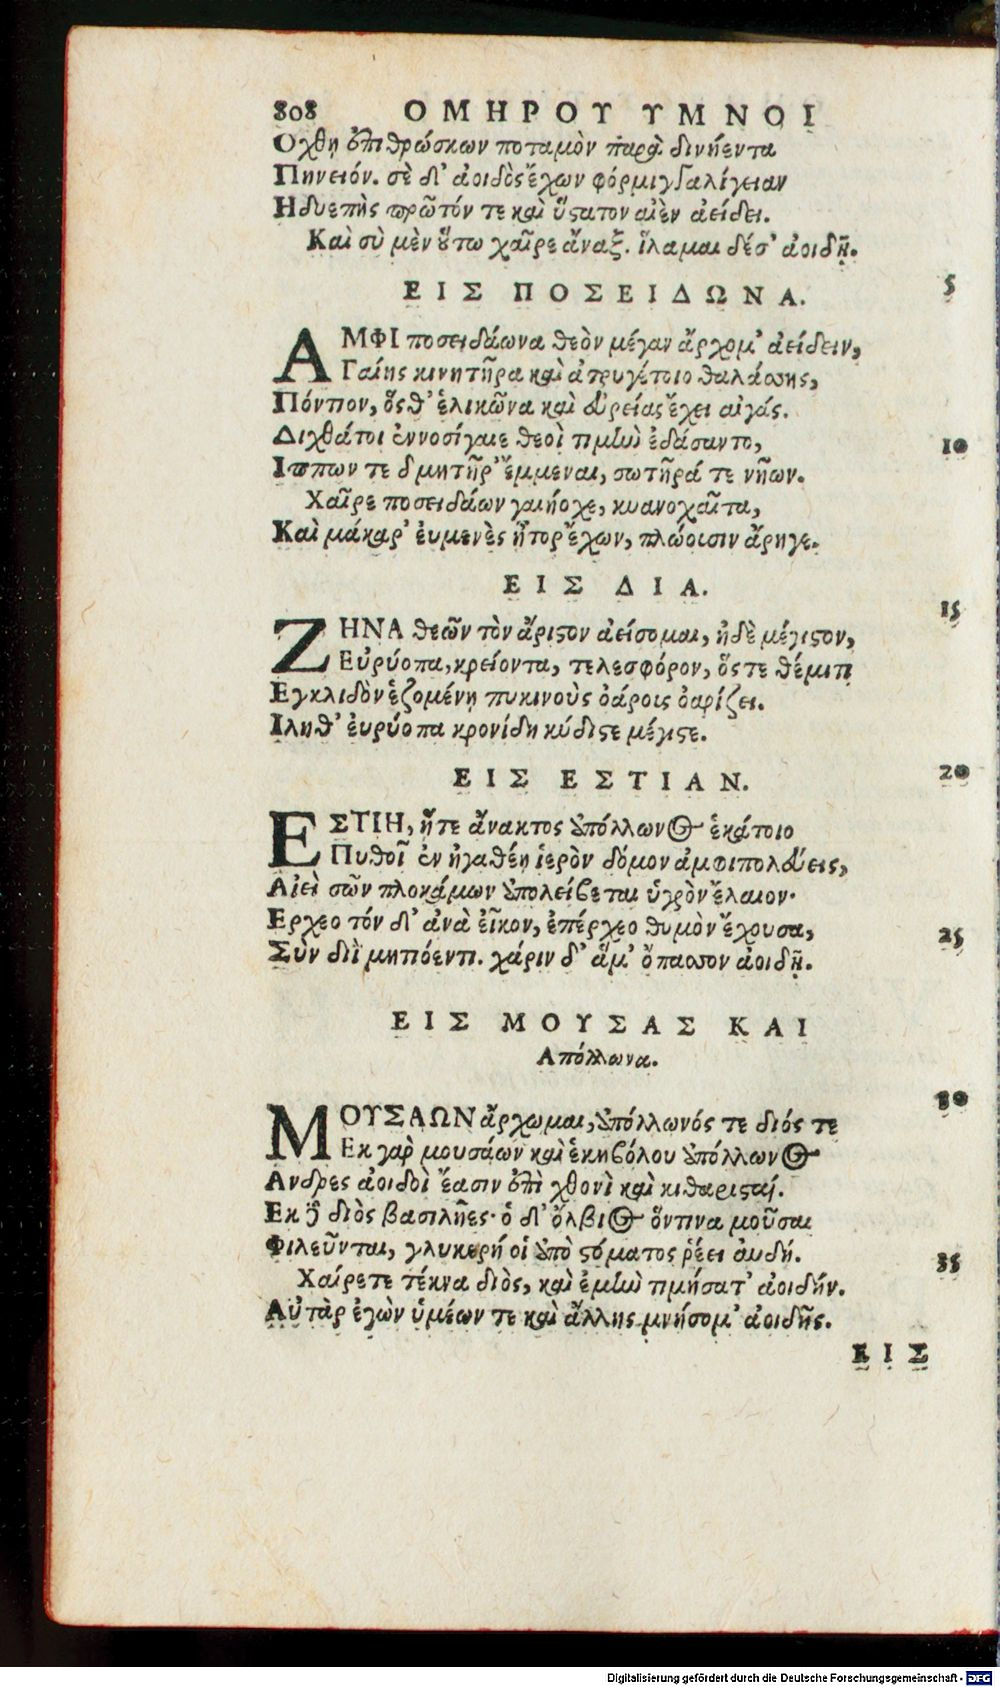 808 ΟΜΗΡΟΥ ΥΜΝΟΙ
Οχθη ἐπιθρώσκων ποταμὸν παρὰ δινήεντα
Πηνειόν. σὲ δ' ἀοιδὸς ἔχων φόρμιγγα λίγειαν
Ηδυεπὴς πρῶτόν τε καὶ ὕςατον αἰὲν ἀείδει.
Καὶ σὺ μὲν ὅτω χαῖρε ἄναξ. ἵλαμαι δέσ' ἀοιδῆ.
ΕΙΣ ΠΟΣΕΙΔΩΝΑ.
5
ΑΜΦΙ ποσειδάωνα θεὸν μέγαν ἄρχομ' ἀείδειν,
Γαίης κινητῆρα καὶ ἀτρυγέτοιο θαλάσσης,
Πόντιον, ὅςθ' ἑλικῶνα καὶ εὐρείας ἔχει αἰγάς.
Διχθάτοι ἐννοσίγαιε θεοὶ τιμὴν ἐδάσαντο,
10
Ιππων τε δμητῆρ' ἔμμεναι, σωτῆρά τε νηῶν.
Χαῖρε ποσειδάων γαιήοχε, κυανοχαῖτα,
Καὶ μάκαρ' ἐυμενὲς ἦτορ ἔχων, πλώοισιν ἄρηγε.
ΕΙΣ ΔΙΑ.
15
ΖΗΝΑ θεῶν τὸν ἄριςον ἀείσομαι, ἠδὲ μέγιςον,
Εὐρύοπα, κρείοντα, τελεσφόρον, ὅςτε θέμιτι
Εγκλιδὸν ἑζομένη πυκινοὺς ὀάροις ὀαρίζει.
Ιληθ' ἐυρύοπα κρονίδη κύδιςε μέγιςε.
ΕΙΣ ΕΣΤΙΑΝ.
20
ΕΣΤΙΗ, ἥτε ἄνακτος ἀπόλλωνος ἑκάτοιο
Πυθοῖ ἐν ἠγαθέη ἱερὸν δόμον ἀμφιπολεύεις,
Αἰεὶ σῶν πλοκάμων ἀπολείβεται ὑγρὸν ἔλαιον·
Ερχεο τόν δ' ἀνὰ εἶκον, ἐπέρχεο θυμὸν ἔχουσα,
25
Σὺν διῒ μητιόεντι. χάριν δ' ἅμ' ὄπασσον ἀοιδῆ.
ΕΙΣ ΜΟΥΣΑΣ ΚΑΙ
Απόλλωνα.
30
ΜΟΥΣΑΩΝ ἄρχωμαι, ἀπόλλωνός τε διός τε
Εκ γὰρ μουσάων καὶ ἑκηβόλου ἀπόλλωνος
Ανδρες ἀοιδοὶ ἔασιν ἐπὶ χθονὶ καὶ κιθαριςαί.
Εκ δὲ διὸς βασιλῆες· ὁ δ' ὄλβιος ὅντινα μοῦσαι
Φιλεῦνται, γλυκερή οἱ ἀπὸ ςόματος ῥέει αὐδή.
35
Χαίρετε τέκνα διὸς, καὶ ἐμὴν τιμήσατ' ἀοιδήν.
Αὐτὰρ ἐγὼν ὑμέων τε καὶ ἄλλης μνήσομ' ἀοιδῆς.
ΕΙΣ
Digitalisierung gefördert durch die Deutsche Forschungsgemeinschaft - DFG